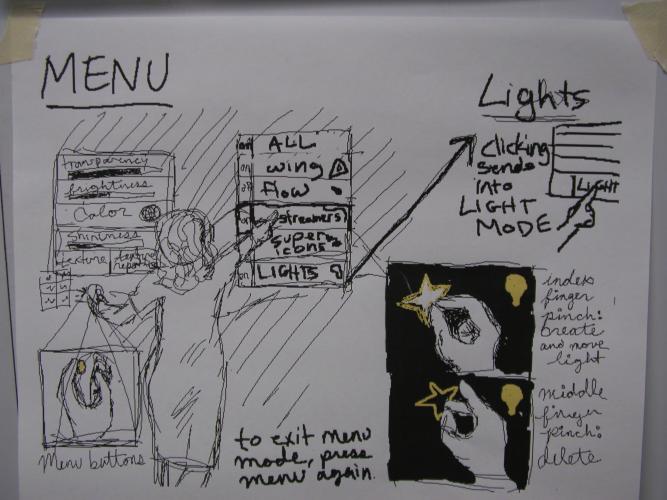 MENU
transparency
brightness
Color
Shininess
texture
texture
Menu buttons
on ALL
on wing
off flow
streamers
super
icons
on LIGHTS
to exit menu
mode, press
menu again.
Lights
clicking
sends
into
LIGHT
MODE
LIGHT
index
finger
pinch:
Create
and move
light
middle
finger
pinch:
delete